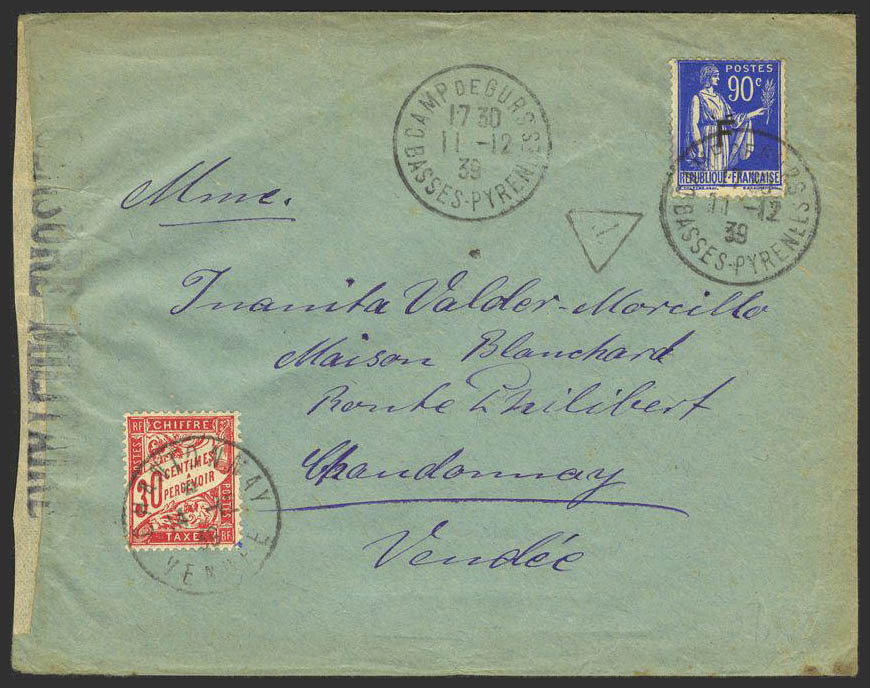 CAMP DE GURS
17 30
11 -12
39
BASSES-PYRENEES
POSTES
90c
F
REPUBLIQUE-FRANÇAISE
11 -12
39
BASSES-PYRENEES
T
Mme.
Juanita Valder-Morcillo
Maison Blanchard
Route Philibert
Chandonnay
Vendée
CENSURE MILITAIRE
RF CHIFFRE RF
POSTES
30 CENTIMES
A
PERCEVOIR
POSTES
RF TAXE RF
14
39
VENDEE